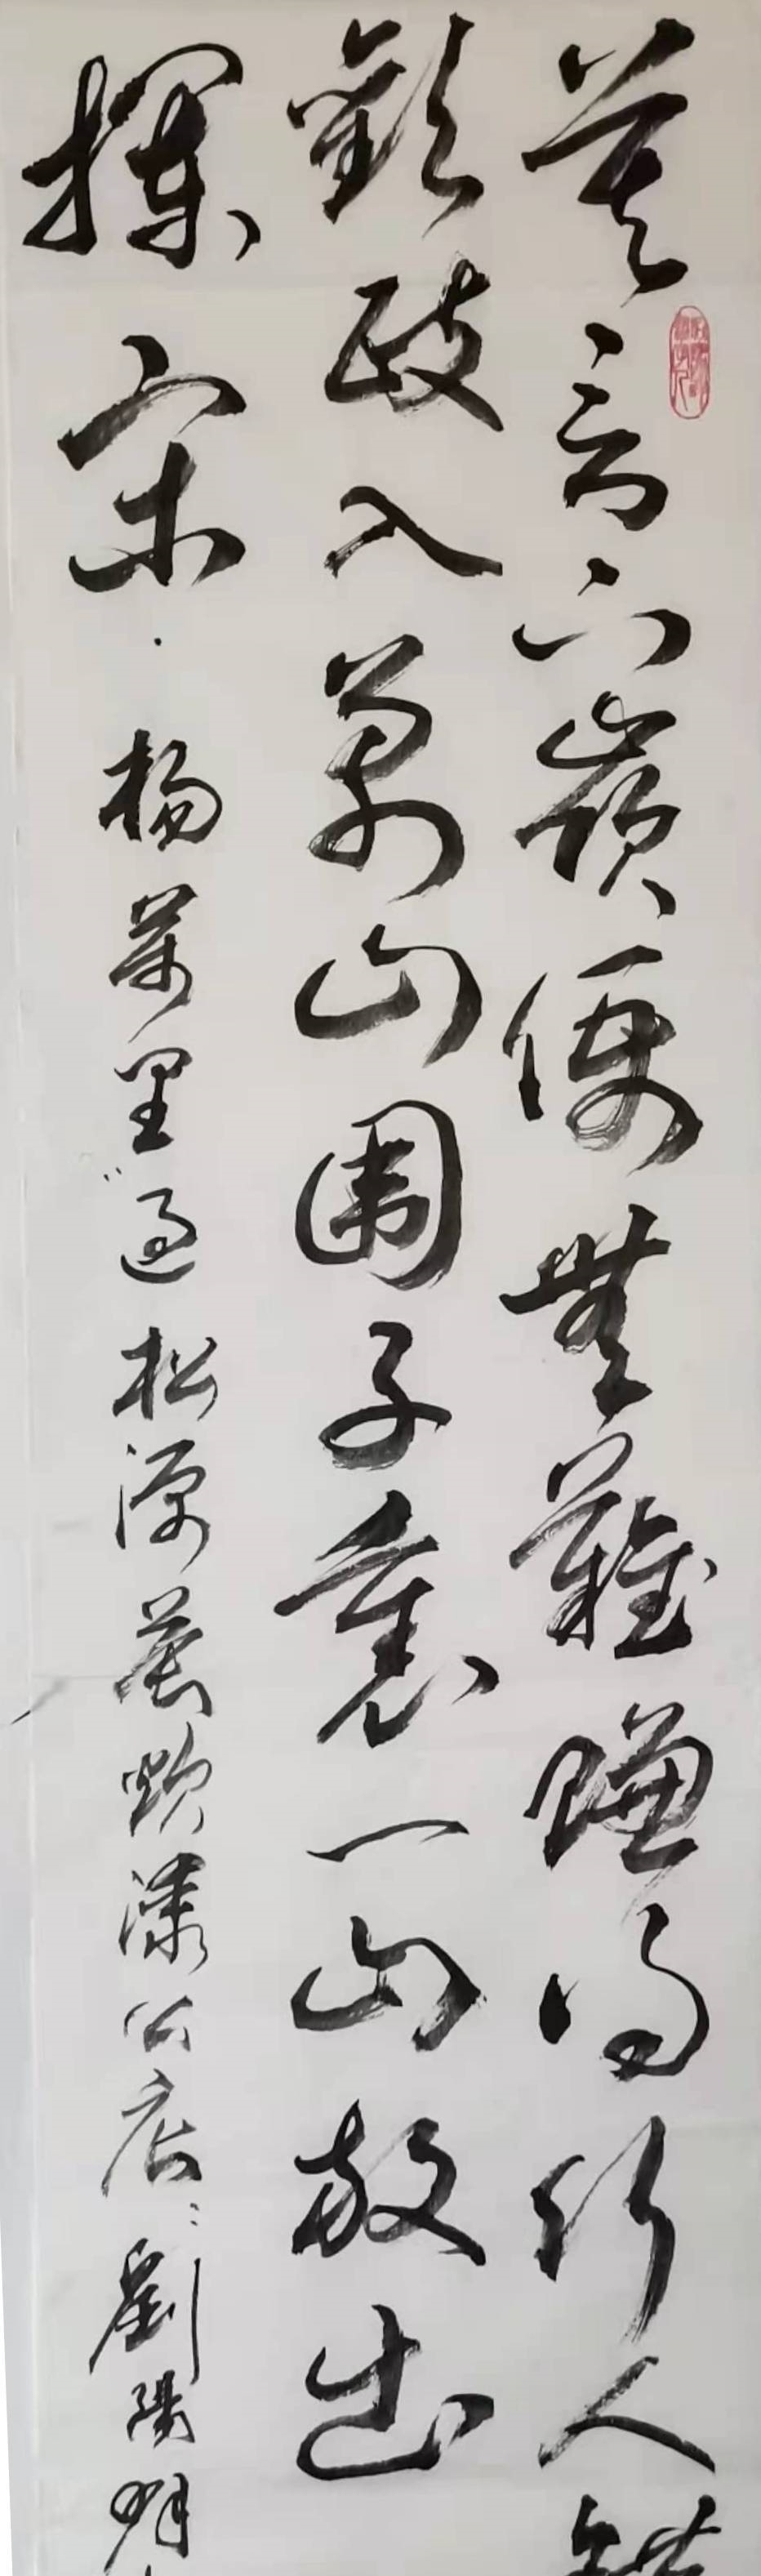 莫言下嶺便無難賺得行人
歡政入萬山圍子裏一山放出
攔 宋·楊萬里“過松源晨炊漆公店” 劉陽